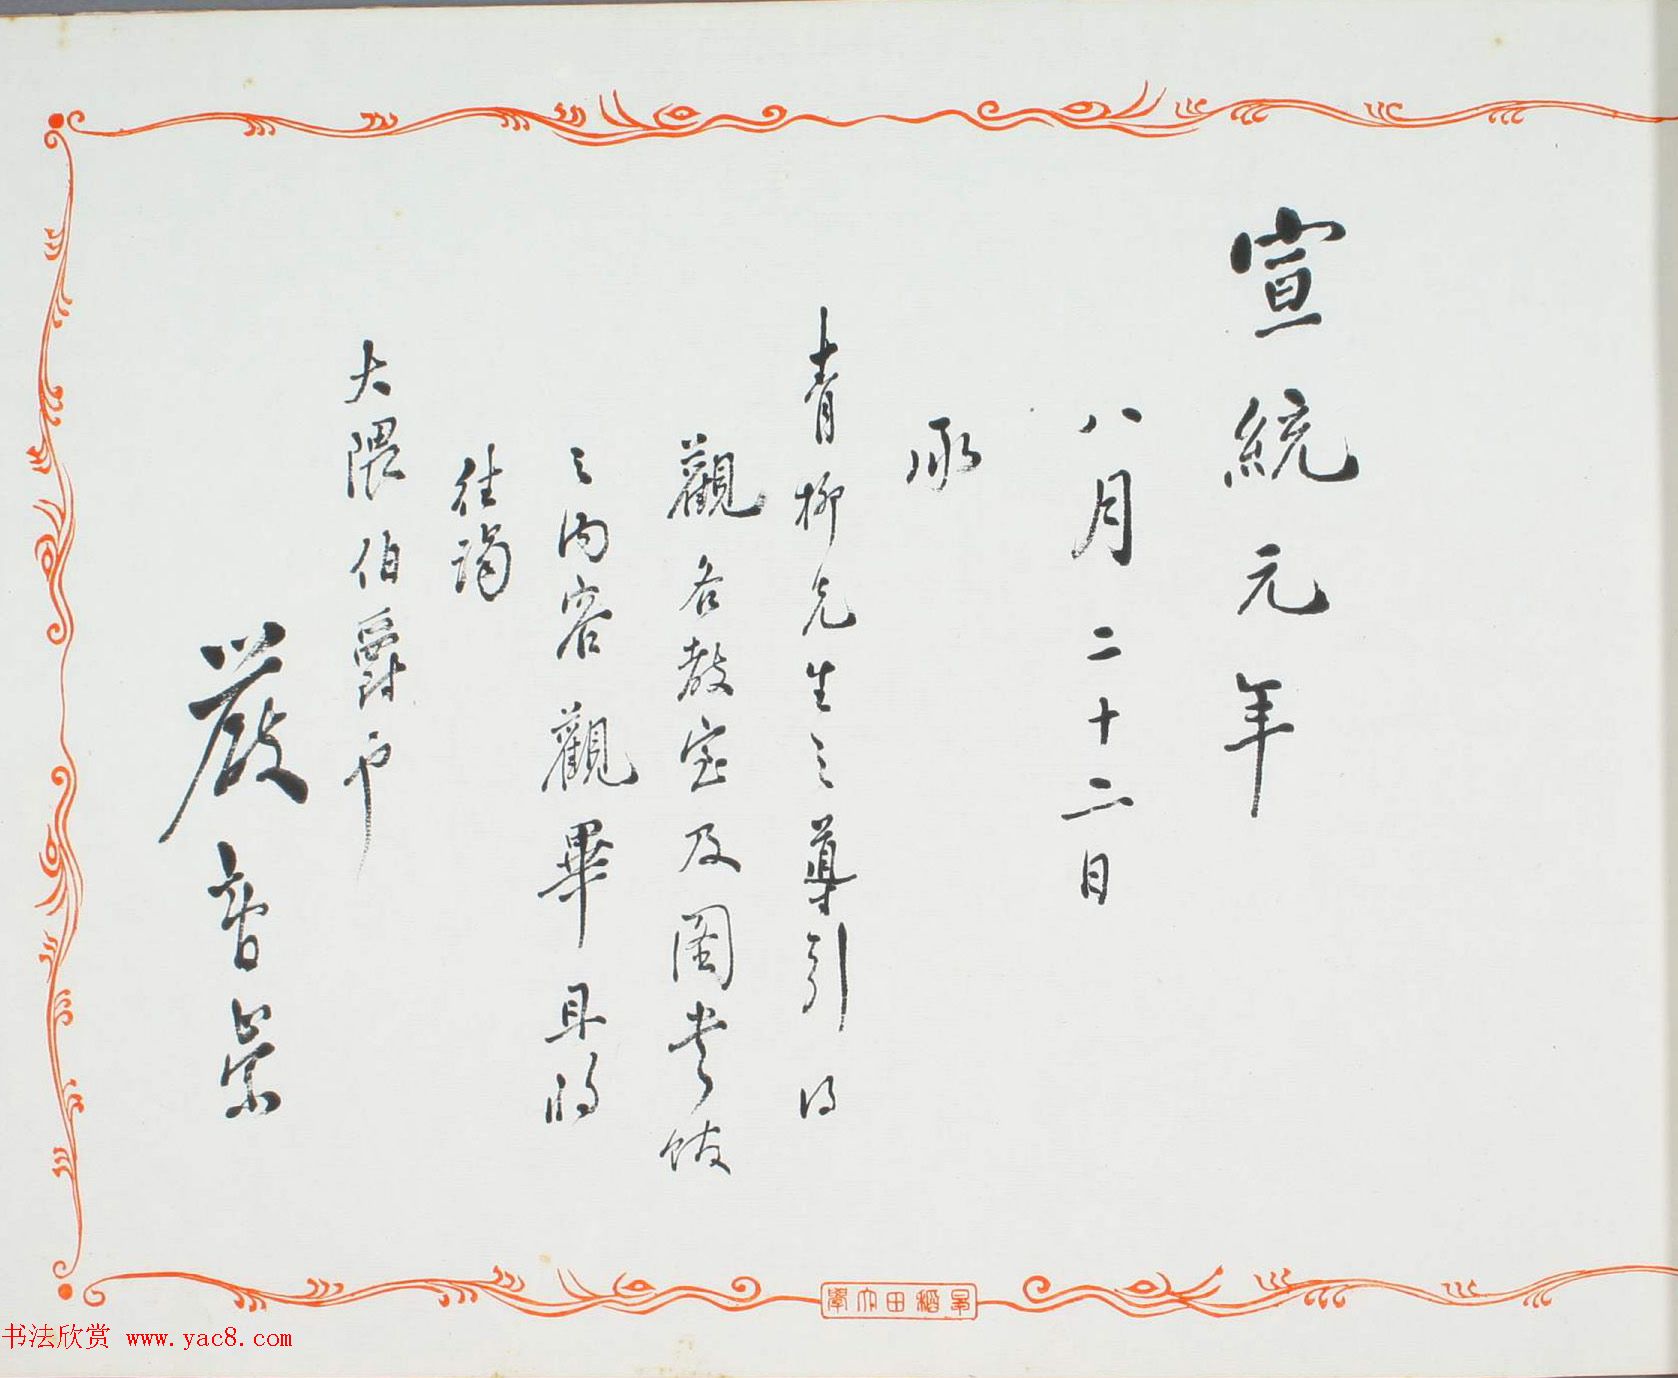 宣統元年
八月二十二日
承
青柳先生之導引得
觀各教室及圖書館
之内容觀畢且將
往謁
大隈伯爵也
嚴智崇
早稻田大學
书法欣赏 www.yac8.com